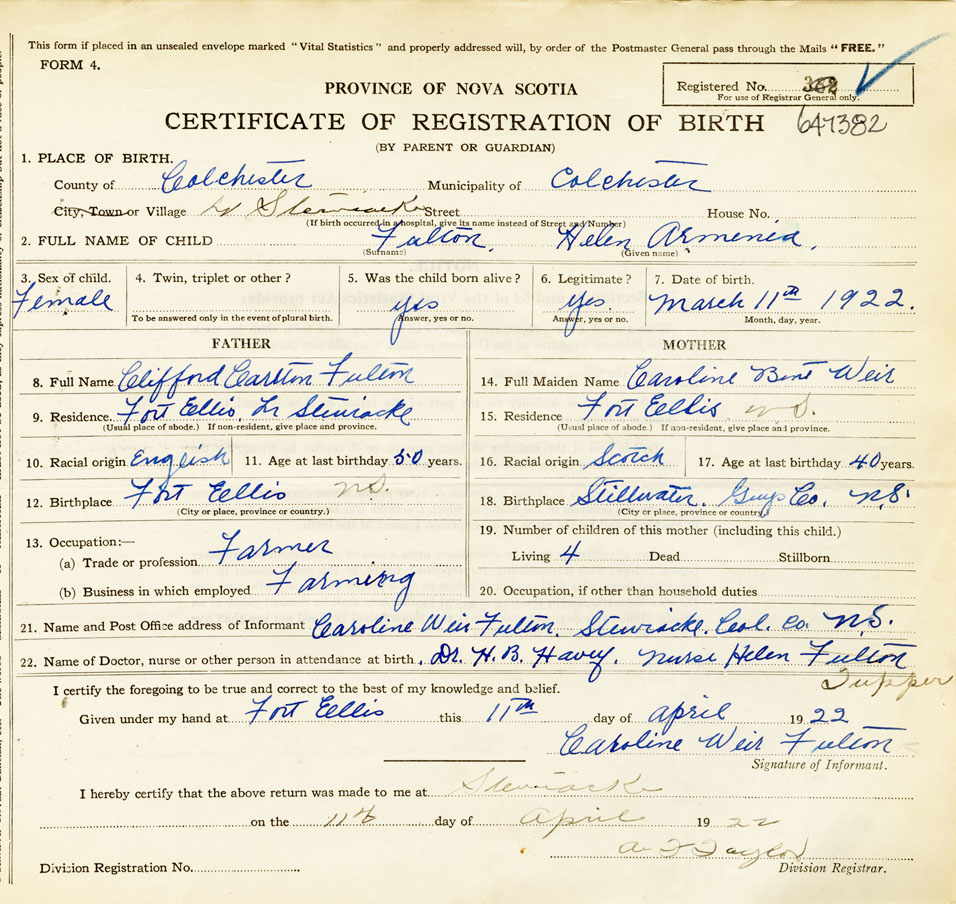 This form if placed in an unsealed envelope marked "Vital Statistics" and properly addressed will, by order of the Postmaster General pass through the Mails "FREE."
FORM 4.
PROVINCE OF NOVA SCOTIA
Registered No.
For use of Registrar General only.
CERTIFICATE OF REGISTRATION OF BIRTH 647382
(BY PARENT OR GUARDIAN)
1. PLACE OF BIRTH.
County of Colchester Municipality of Colchester
City, Town or Village Stewiacke Street House No.
(If birth occurred in a hospital, give its name instead of Street and Number)
2. FULL NAME OF CHILD Fulton, Helen Armenia.
(Surname) (Given name)
3. Sex of child. 4. Twin, triplet or other? 5. Was the child born alive? 6. Legitimate? 7. Date of birth.
Female yes yes. March 11th 1922.
To be answered only in the event of plural birth. Answer, yes or no. Answer, yes or no. Month, day, year.
FATHER MOTHER
8. Full Name Clifford Carlton Fulton 14. Full Maiden Name Caroline Bent Weir
9. Residence. Fort Eellis, Lr Stewiacke 15. Residence Fort Eellis N.S.
(Usual place of abode.) If non-resident, give place and province. (Usual place of abode.) If non-resident, give place and province.
10. Racial origin English 11. Age at last birthday 50 years. 16. Racial origin Scotch 17. Age at last birthday 40 years.
12. Birthplace Fort Eellis N.S. 18. Birthplace Stillwater, Guys Co. N.S.
(City or place, province or country.) (City or place, province or country.)
13. Occupation:— 19. Number of children of this mother (including this child.)
(a) Trade or profession Farmer Living 4 Dead Stillborn
(b) Business in which employed Farming 20. Occupation, if other than household duties
21. Name and Post Office address of Informant Caroline Weir Fulton, Stewiacke, Col. Co. N.S.
22. Name of Doctor, nurse or other person in attendance at birth. Dr. H. B. Havey. Nurse Helen Fulton
Tupper
I certify the foregoing to be true and correct to the best of my knowledge and belief.
Given under my hand at Fort Eellis this 11th day of April 1922
Caroline Weir Fulton
Signature of Informant.
I hereby certify that the above return was made to me at Stewiacke
on the 11th day of April 1922
Taylor
Division Registration No. Division Registrar.